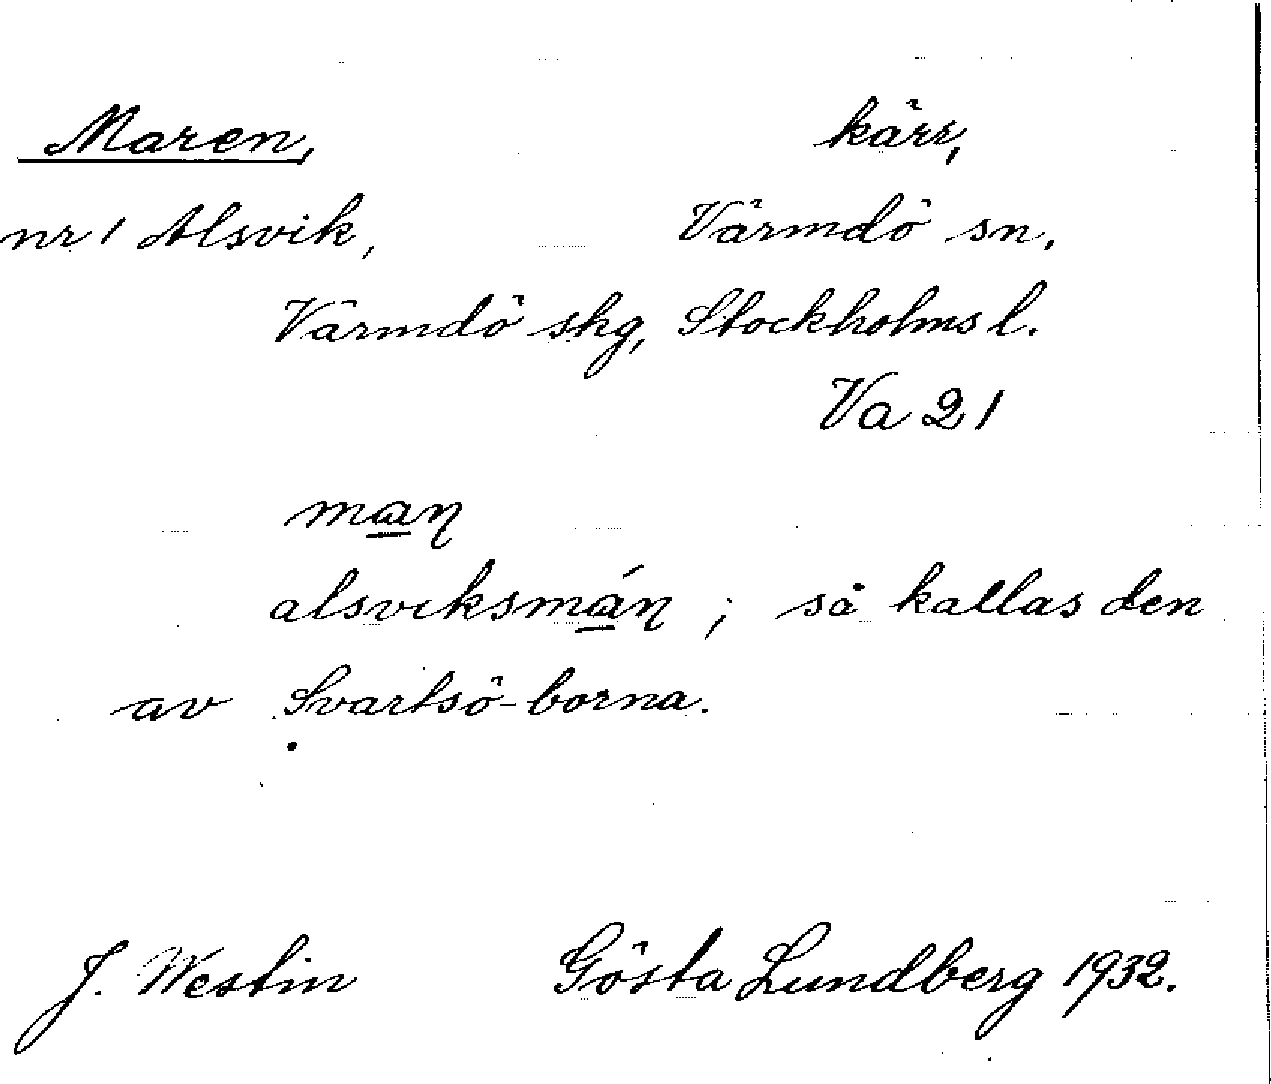 Maren, kärr,
nr 1 Alsvik, Värmdö sn.
Värmdö skg, Stockholms l.
Va 21
ma̲ɳ
alsviksmá̲ɳ ; så kallas den
av Svartsö-borna.
J. Westin Gösta Lundberg 1932.